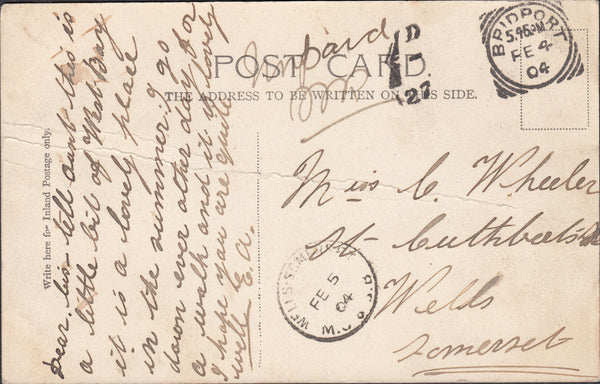 POST CARD.
THE ADDRESS TO BE WRITTEN ON THIS SIDE.
Write here for Inland Postage only.
Dear tell aunt this is
a little bit of West Bay
it is a lovely place
in the summer i go
down ever other day for
a walk and it is lovely
I hope you are quite
well
BRIDPORT
5.45PM
FE 4
04
1D
27
Miss C. Wheeler
St Cuthberts
Wells
Somerset
WELLS SOMERSET
FE 5
04